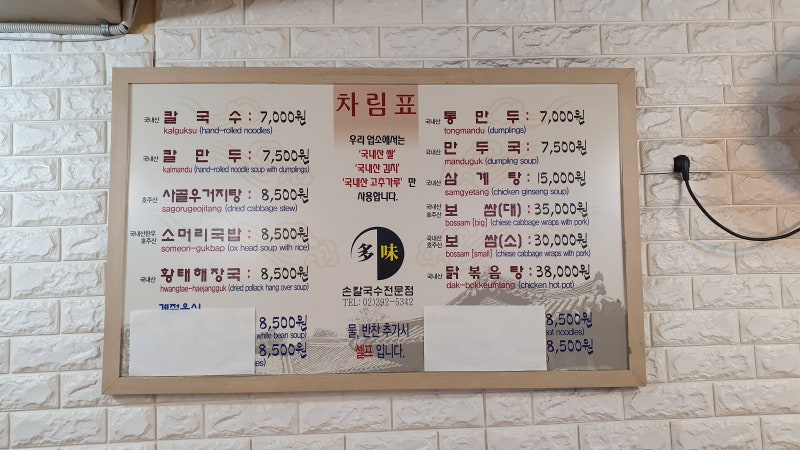 차림표
국내산 칼 국 수 : 7,000원
kalguksu (hand-rolled noodles)
국내산 칼 만 두 : 7,500원
kalmandu (hand-rolled noodle soup with dumplings)
호주산 사골우거지탕 : 8,500원
sagorugeojitang (dried cabbage stew)
국내산한우 호주산 소머리국밥 : 8,500원
someori-gukbap (ox head soup with rice)
국내산 황태해장국 : 8,500원
hwangtae-haejangguk (dried pollack hang over soup)
계절음식
8,500원
white bean soup)
8,500원
es)
우리 업소에서는
'국내산 쌀'
'국내산 김치'
'국내산 고추가루' 만
사용합니다.
多味
손칼국수전문점
TEL: 02)392-5342
물, 반찬 추가시
셀프 입니다.
국내산 통 만 두 : 7,000원
tongmandu (dumplings)
국내산 만 두 국 : 7,500원
manduguk (dumpling soup)
국내산 삼 계 탕 : 15,000원
samgyetang (chicken ginseng soup)
국내산 호주산 보 쌈(대) : 35,000원
bossam [big] (chiese cabbage wraps with pork)
국내산 호주산 보 쌈(소) : 30,000원
bossam [small] (chiese cabbage wraps with pork)
국내산 닭 볶음 탕 : 38,000원
dak-bokkeumtang (chicken hot pot)
8,500원
at noodles)
8,500원